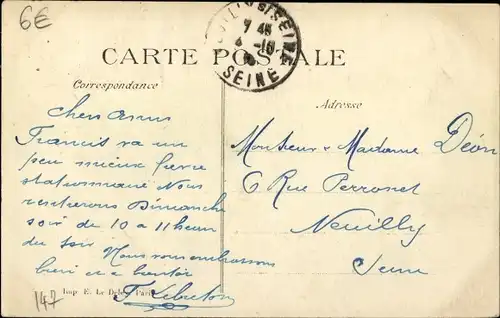 6€
NEUILLY S/SEINE
7 45
4 -10
SEINE
CARTE POSTALE
Correspondance
Adresse
Chers amis
Francis va un
peu mieux fièvre
stationnaire Nous
resterons Dimanche
soir de 10 à 11 heures
du soir Nous vous embrassons
bien et à bientôt
Imp. E. Le Deley, Paris
147
Monsieur & Madame Déon
6 Rue Perronet
Neuilly
Seine